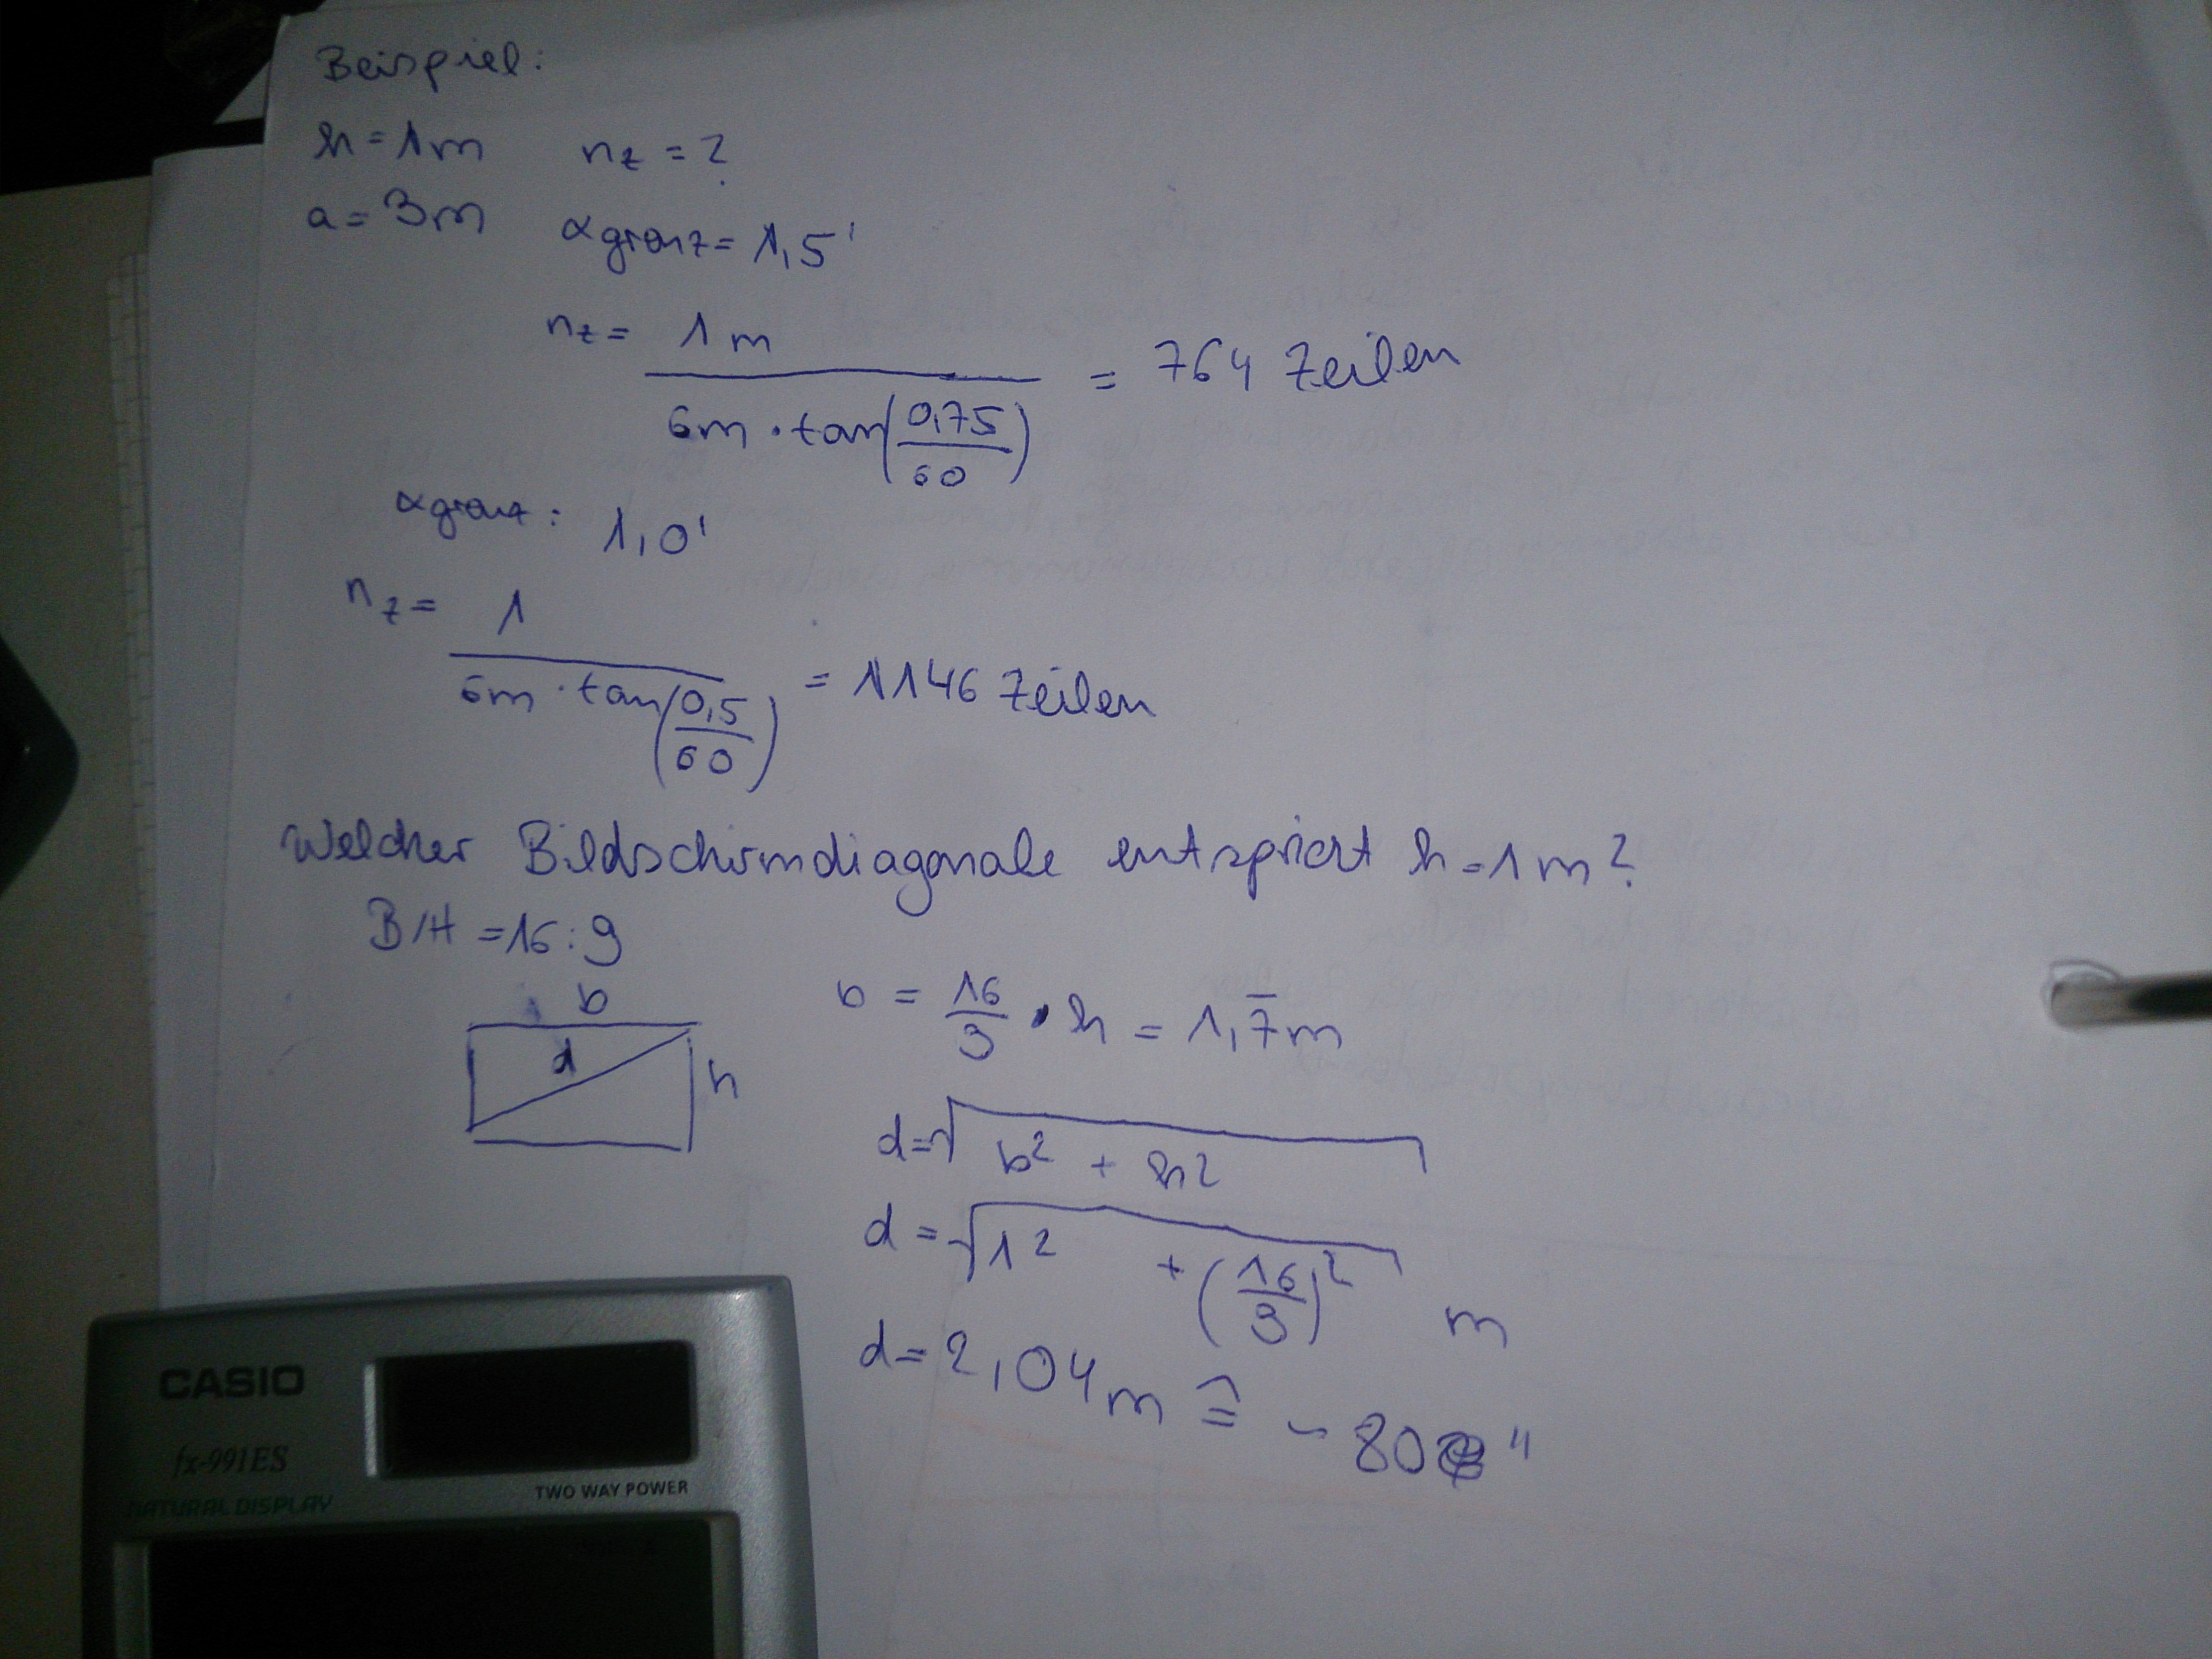 Beispiel:
h = 1m nz = ?
a = 3m αgrenz = 1,5'
nz = 1m / (6m · tan(0,75/60)) = 764 Zeilen
αgrenz: 1,0'
nz = 1 / (6m · tan(0,5/60)) = 1146 Zeilen
Welcher Bildschirmdiagonale entspricht h = 1m?
B/H = 16:9
b
d
h
b = 16/9 · h = 1,7̅m
d = √(b² + h²)
d = √(1² + (16/9)²) m
d = 2,04m ≙ ~ 80"
CASIO
fx-991ES
NATURAL DISPLAY
TWO WAY POWER